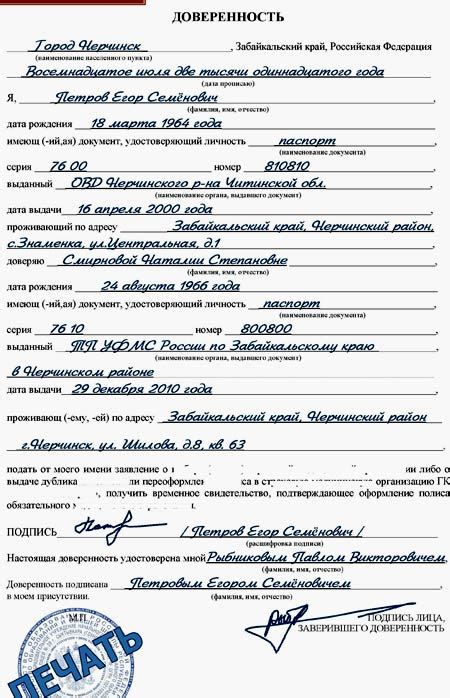 ДОВЕРЕННОСТЬ
Город Нерчинск, Забайкальский край, Российская Федерация
(наименование населенного пункта)
Восемнадцатое июля две тысячи одиннадцатого года
(дата прописью)
Я, Петров Егор Семёнович,
(фамилия, имя, отчество)
дата рождения 18 марта 1964 года
имеющ (-ий,ая) документ, удостоверяющий личность паспорт
(наименование документа)
серия 76 00 номер 810810,
выданный ОВД Нерчинского р-на Читинской обл.,
(наименование органа, выдавшего документ)
дата выдачи 16 апреля 2000 года
проживающий по адресу Забайкальский край, Нерчинский район,
с.Знаменка, ул.Центральная, д.1
доверяю Смирновой Наталии Степановне
(фамилия, имя, отчество)
дата рождения 24 августа 1966 года
имеющ (-ий,ая) документ, удостоверяющий личность паспорт
(наименование документа)
серия 76 10 номер 800800,
выданный ТП УФМС России по Забайкальскому краю
(наименование органа, выдавшего документ)
в Нерчинском районе
дата выдачи 29 декабря 2010 года
проживающ (-ему, -ей) по адресу Забайкальский край, Нерчинский район
г.Нерчинск, ул. Шилова, д.8, кв. 63
подать от моего имени заявление о либо о
выдаче дубликата или переоформле организацию ГК
, получить временное свидетельство, подтверждающее оформление полиса
обязательного
ПОДПИСЬ / Петров Егор Семёнович /
(расшифровка подписи)
Настоящая доверенность удостоверена мной Рыбниковым Павлом Викторовичем,
(фамилия, имя, отчество)
Доверенность подписана Петровым Егором Семёновичем
в моем присутствии. (фамилия, имя, отчество)
М.П. ПОДПИСЬ ЛИЦА,
ЗАВЕРИВШЕГО ДОВЕРЕННОСТЬ
ПЕЧАТЬ